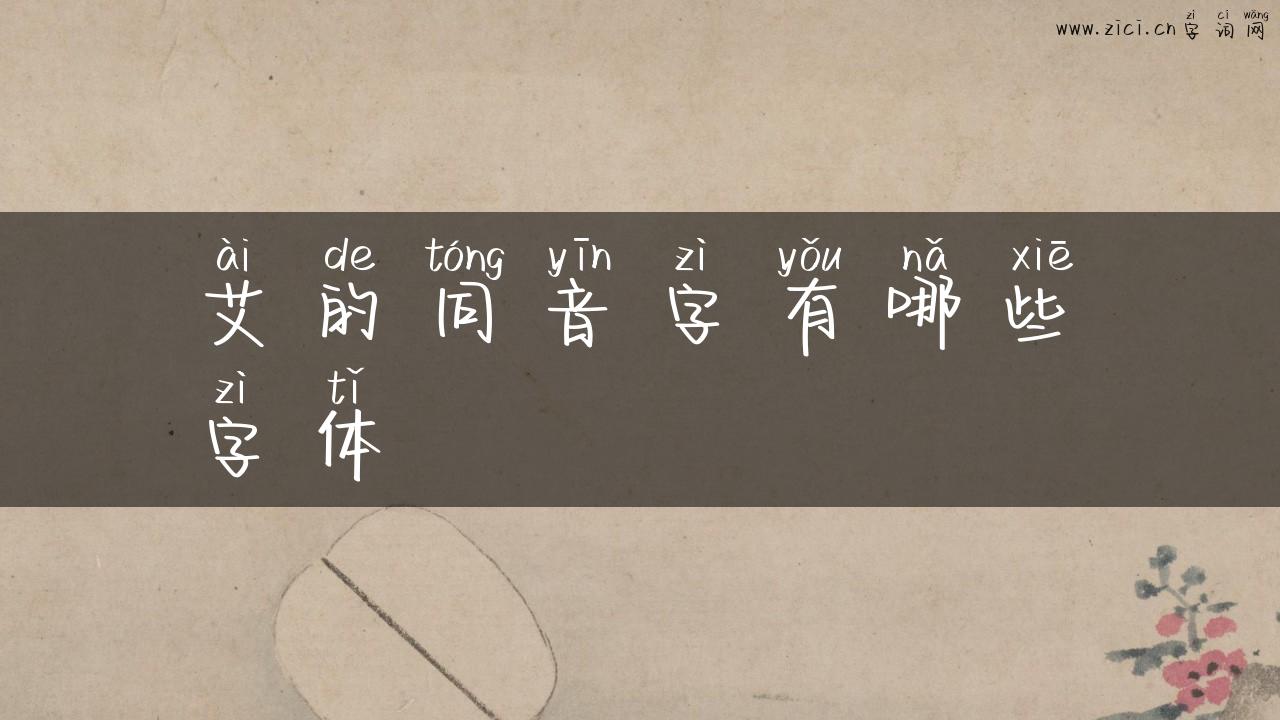 zì cí wǎng
www.zici.cn字词网
ài de tóng yīn zì yǒu nǎ xiē
艾的同音字有哪些
zì tǐ
字体